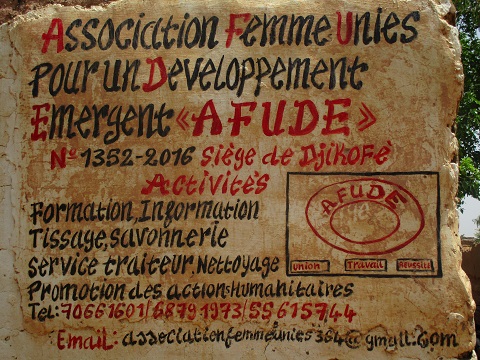 Association Femme Unies
Pour un Developpement
Emergent «AFUDE»
N° 1352-2016 Siège de Djikofè
Activités
Formation, Information
Tissage, Savonnerie
Service traiteur, Nettoyage
Promotion des actions humanitaires
Tel: 70661601/68791973/55615744
Email: associationfemmeunies364@gmail.com
AFUDE
Union Travail Réussite